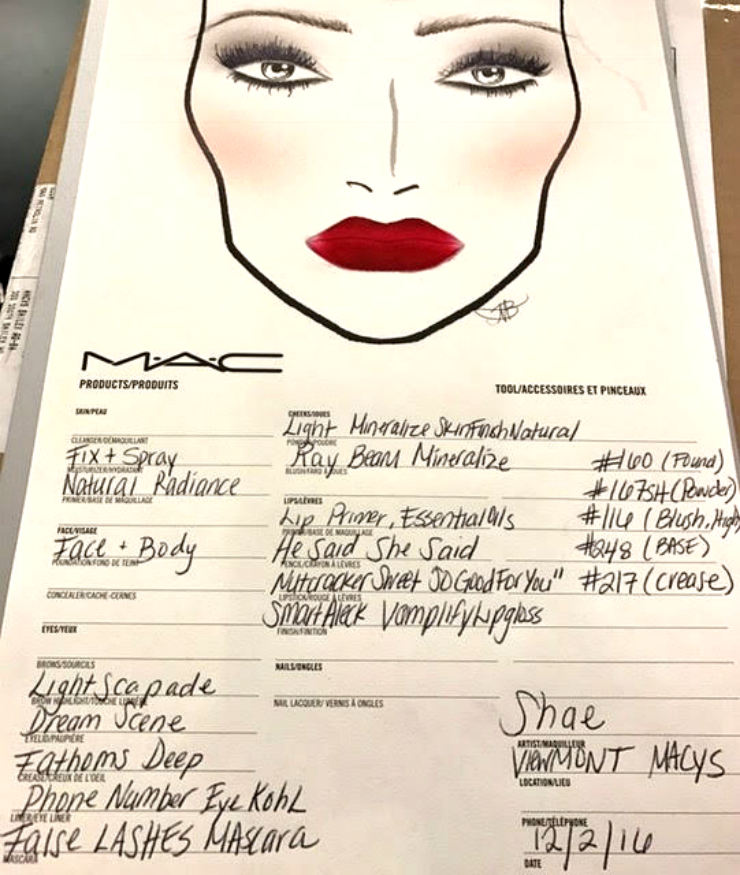 M·A·C
PRODUCTS/PRODUITS
TOOL/ACCESSOIRES ET PINCEAUX
SKIN/PEAU
CLEANSER/DÉMAQUILLANT
Fix + Spray
MOISTURIZER/HYDRATANT
Natural Radiance
PRIMER/BASE DE MAQUILLAGE
FACE/VISAGE
Face + Body
FOUNDATION/FOND DE TEINT
CONCEALER/CACHE-CERNES
EYES/YEUX
BROWS/SOURCILS
Lightscapade
BROW HIGHLIGHT/TOUCHE LUMIÈRE
Dream Scene
EYELID/PAUPIÈRE
Fathoms Deep
CREASE/CREUX DE L'OEIL
Phone Number Eye Kohl
LINER/EYE LINER
False LASHES MAscara
MASCARA
CHEEKS/JOUES
Light Mineralize SkinFinish Natural
POWDER/POUDRE
Ray Beam Mineralize
BLUSH/FARD À JOUES
LIPS/LÈVRES
Lip Primer, Essential Oils
PRIMER/BASE DE MAQUILLAGE
He Said She Said
PENCIL/CRAYON À LÈVRES
Nutcracker Sweet "SO Good For You"
LIPSTICK/ROUGE À LÈVRES
Smart Aleck Vamplify Lipgloss
FINISH/FINITION
NAILS/ONGLES
NAIL LACQUER/ VERNIS À ONGLES
#160 (Found)
#167SH (Powder)
#116 (Blush, High
#248 (BASE)
#217 (crease)
Shae
ARTIST/MAQUILLEUR
VIEWMONT MACYS
LOCATION/LIEU
PHONE/TÉLÉPHONE
12/2/16
DATE